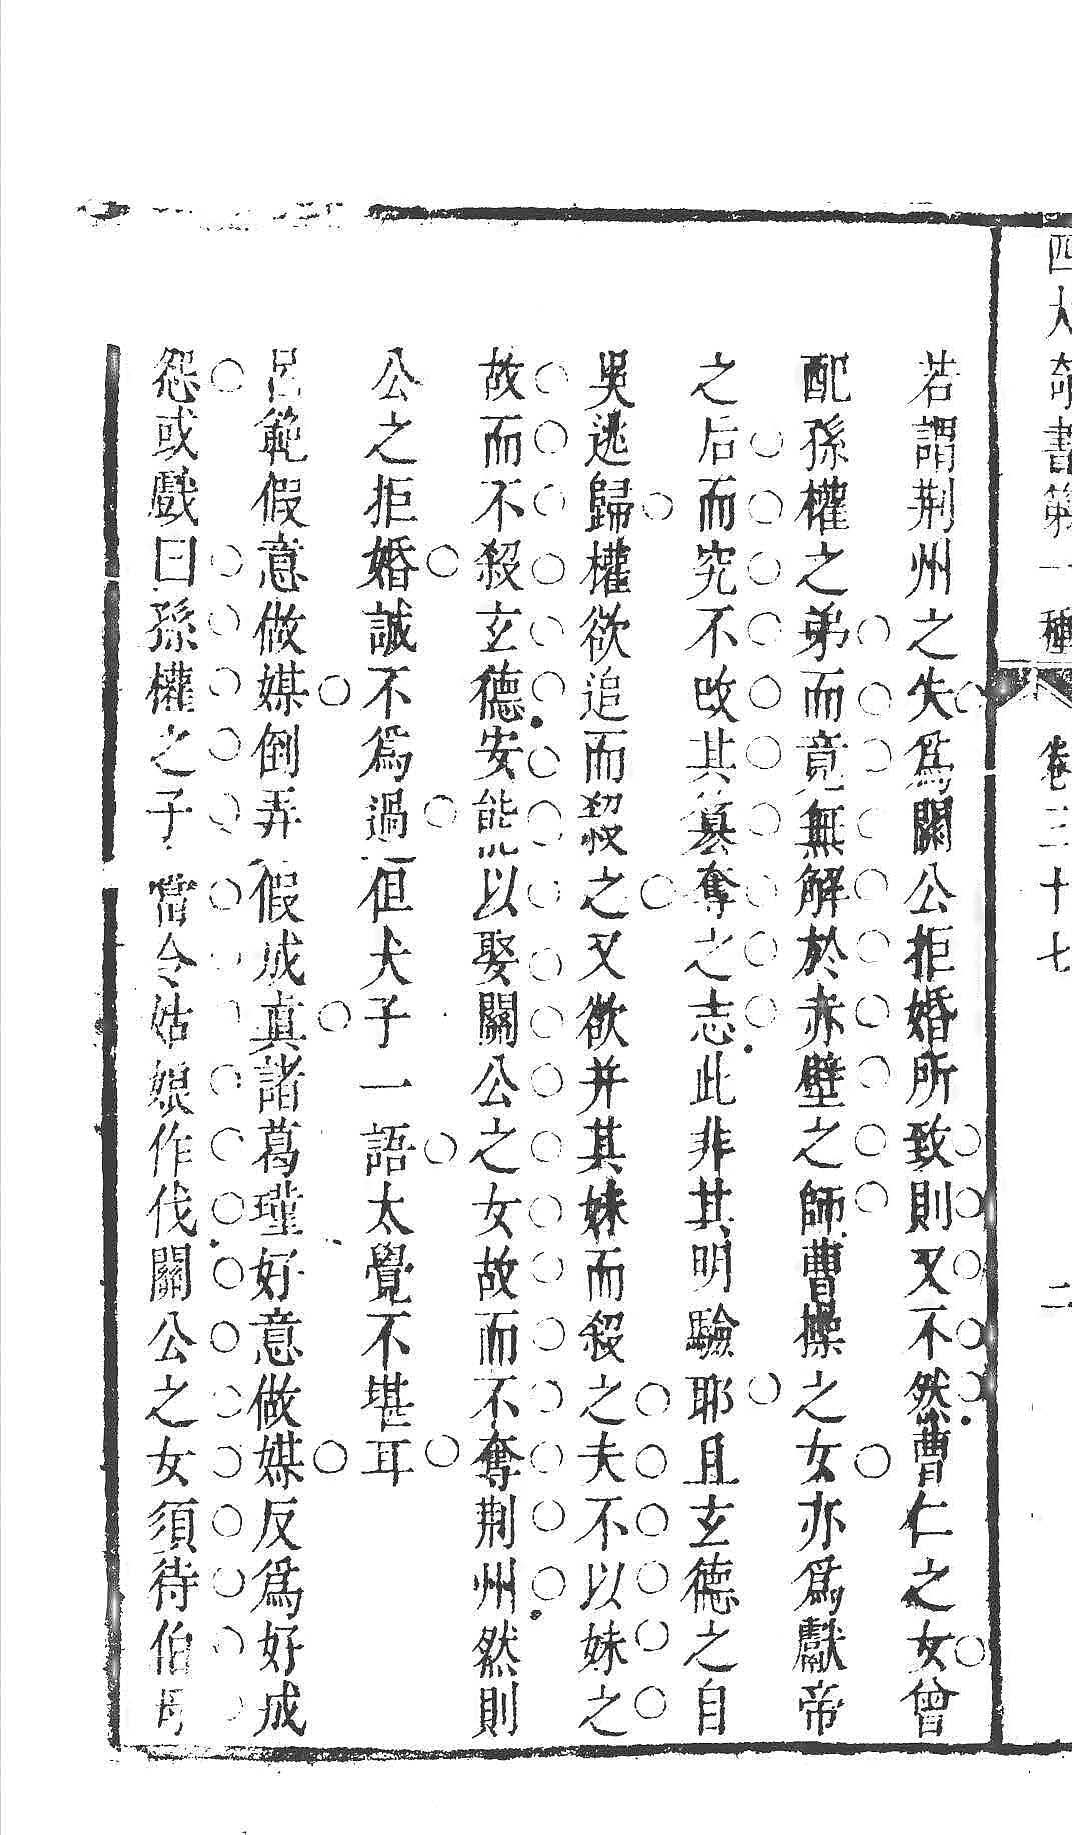 四大奇書第一種 卷三十七 二
若謂荆州之失爲關公拒婚所致則又不然曹仁之女曾
配孫權之弟而竟無解於赤壁之師曹操之女亦爲獻帝
之后而究不改其篡奪之志此非其明驗耶且玄德之自
吳逃歸權欲追而殺之又欲并其妹而殺之夫不以妹之
故而不殺玄德安能以娶關公之女故而不奪荆州然則
公之拒婚誠不爲過但犬子一語太覺不堪耳
呂範假意做媒倒弄假成真諸葛瑾好意做媒反爲好成
怨或戲曰孫權之子當令姑娘作伐關公之女須待伯